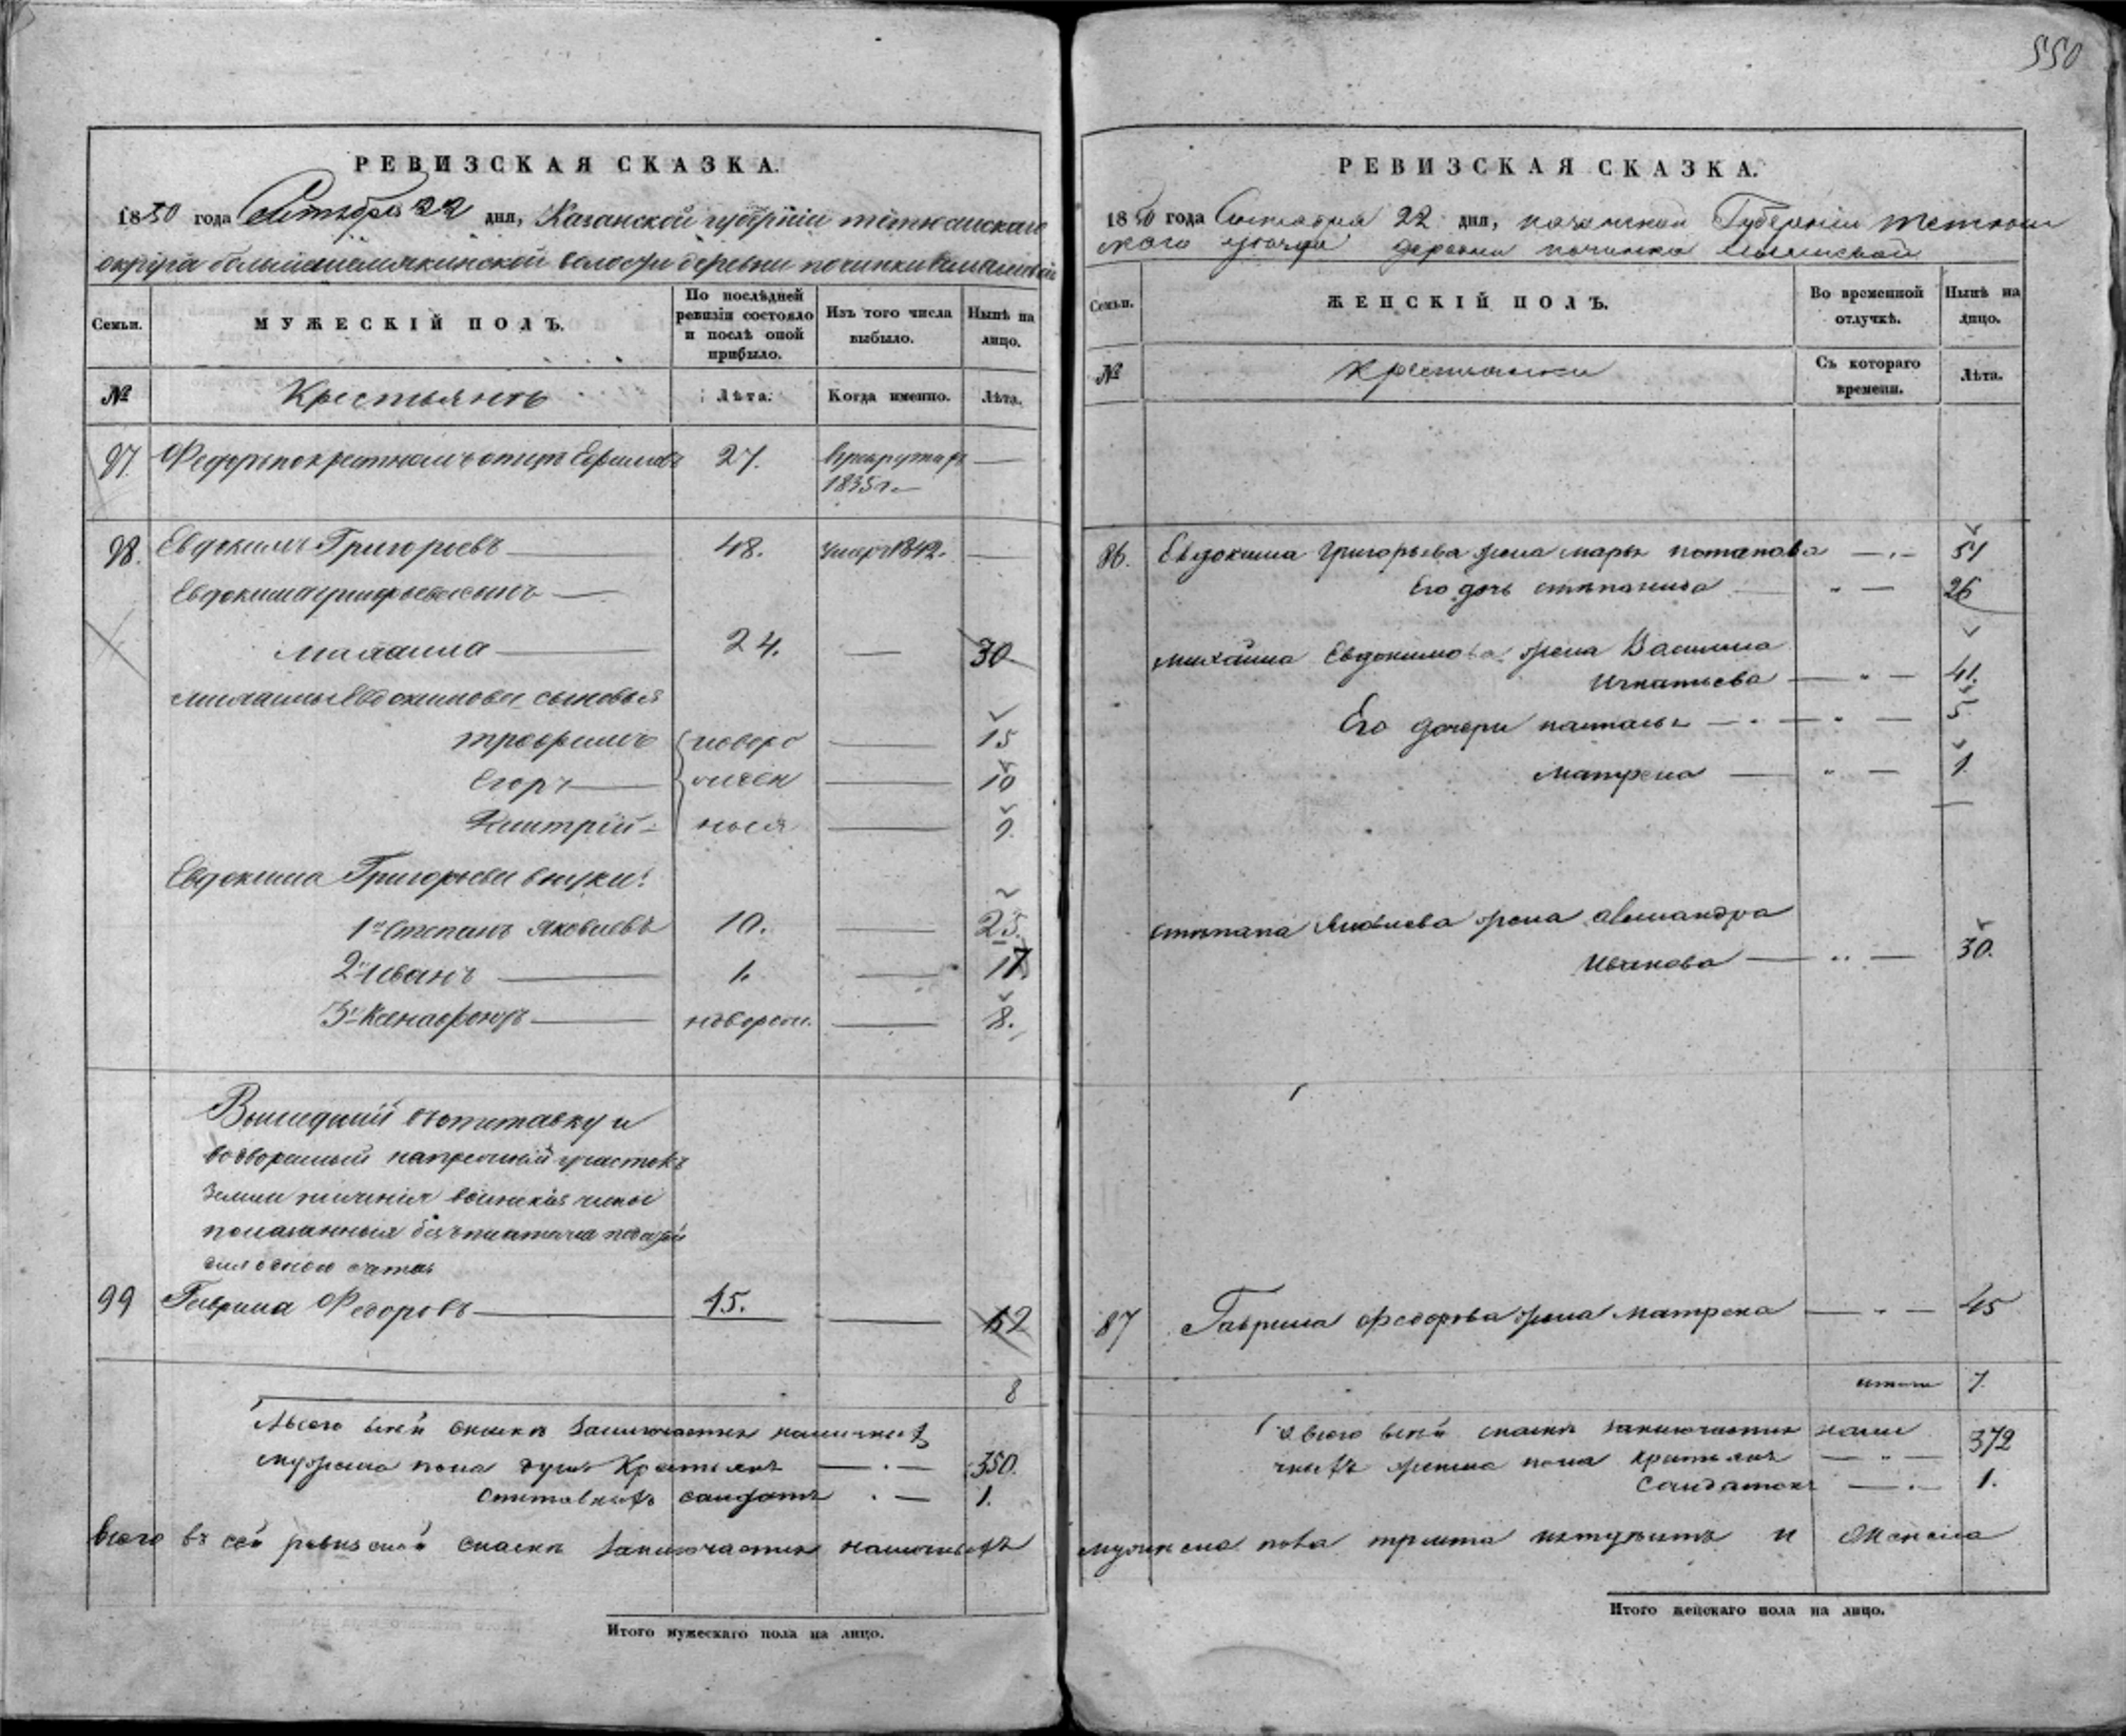 550
РЕВИЗСКАЯ СКАЗКА.
1850 года Октября 22 дня, Казанской губерніи тетюшскаго
округа большешемякинской волости деревни починки
Семьи.
МУЖЕСКІЙ ПОЛЪ.
По послѣдней ревизіи состояло и послѣ оной прибыло.
Изъ того числа выбыло.
Нынѣ на лицо.
№
Крестьянъ
Лѣта.
Когда именно.
Лѣта.
97. Федоръ Ефимовъ 27. 1835 г.
98. Евдокимъ Григорьевъ 48. умеръ 1842.
Евдокима григорьева сынъ
михаила 24. 30
михаилы Евдокимова сыновья
трофимъ новоро 15
Егоръ жден 10
Дмитрій ныя 9.
Евдокима Григорьева внуки:
1й Степанъ Яковлевъ 10. 25.
2й Иванъ 1. 17
3й Ксенофонтъ новорож. 8.
Вышедшій въ отставку и
водворенный участокъ
земли воинскія чины
99 Гаврила Федоровъ 45. 52
8
А всего в сей сказкѣ заключается наличныхъ
мужеска пола душъ Крестьянъ 350.
отставныхъ солдатъ 1.
Всего въ сей ревизской сказкѣ заключается наличныхъ
Итого мужескаго пола на лицо.
РЕВИЗСКАЯ СКАЗКА.
1850 года Октября 22 дня, казанской Губерніи тетюш
скаго уѣзда деревни починка
Семьи.
ЖЕНСКІЙ ПОЛЪ.
Во временной отлучкѣ.
Нынѣ на лицо.
№
Крестьянки
Съ котораго времени.
Лѣта.
86. Евдокима Григорьева жена марья потапова 51
Его дочь степанида 26
михаила Евдокимова жена Василиса
Игнатьева 41.
Его дочери наталья 5
матрена 1
степана Яковлева жена александра
Иванова 30.
87 Гаврила федорова жена матрена 45
итого 7
А всего в сей сказкѣ заключается нали
чныхъ женска пола крестьянъ 372
Солдатокъ 1.
мужеска пола триста и Женска
Итого женскаго пола на лицо.